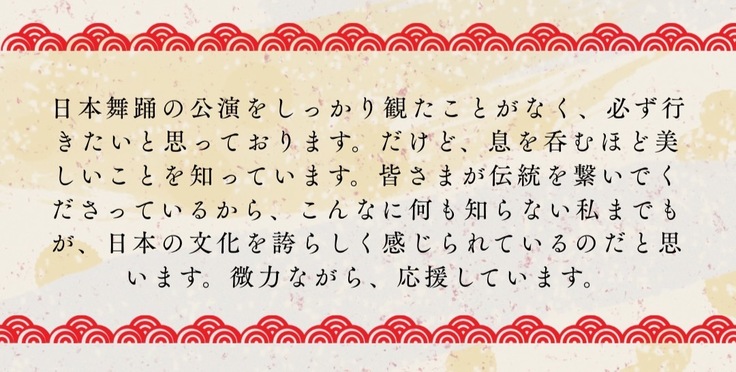 日本舞踊の公演をしっかり観たことがなく、必ず行
きたいと思っております。だけど、息を呑むほど美
しいことを知っています。皆さまが伝統を繋いでく
ださっているから、こんなに何も知らない私までも
が、日本の文化を誇らしく感じられているのだと思
います。微力ながら、応援しています。